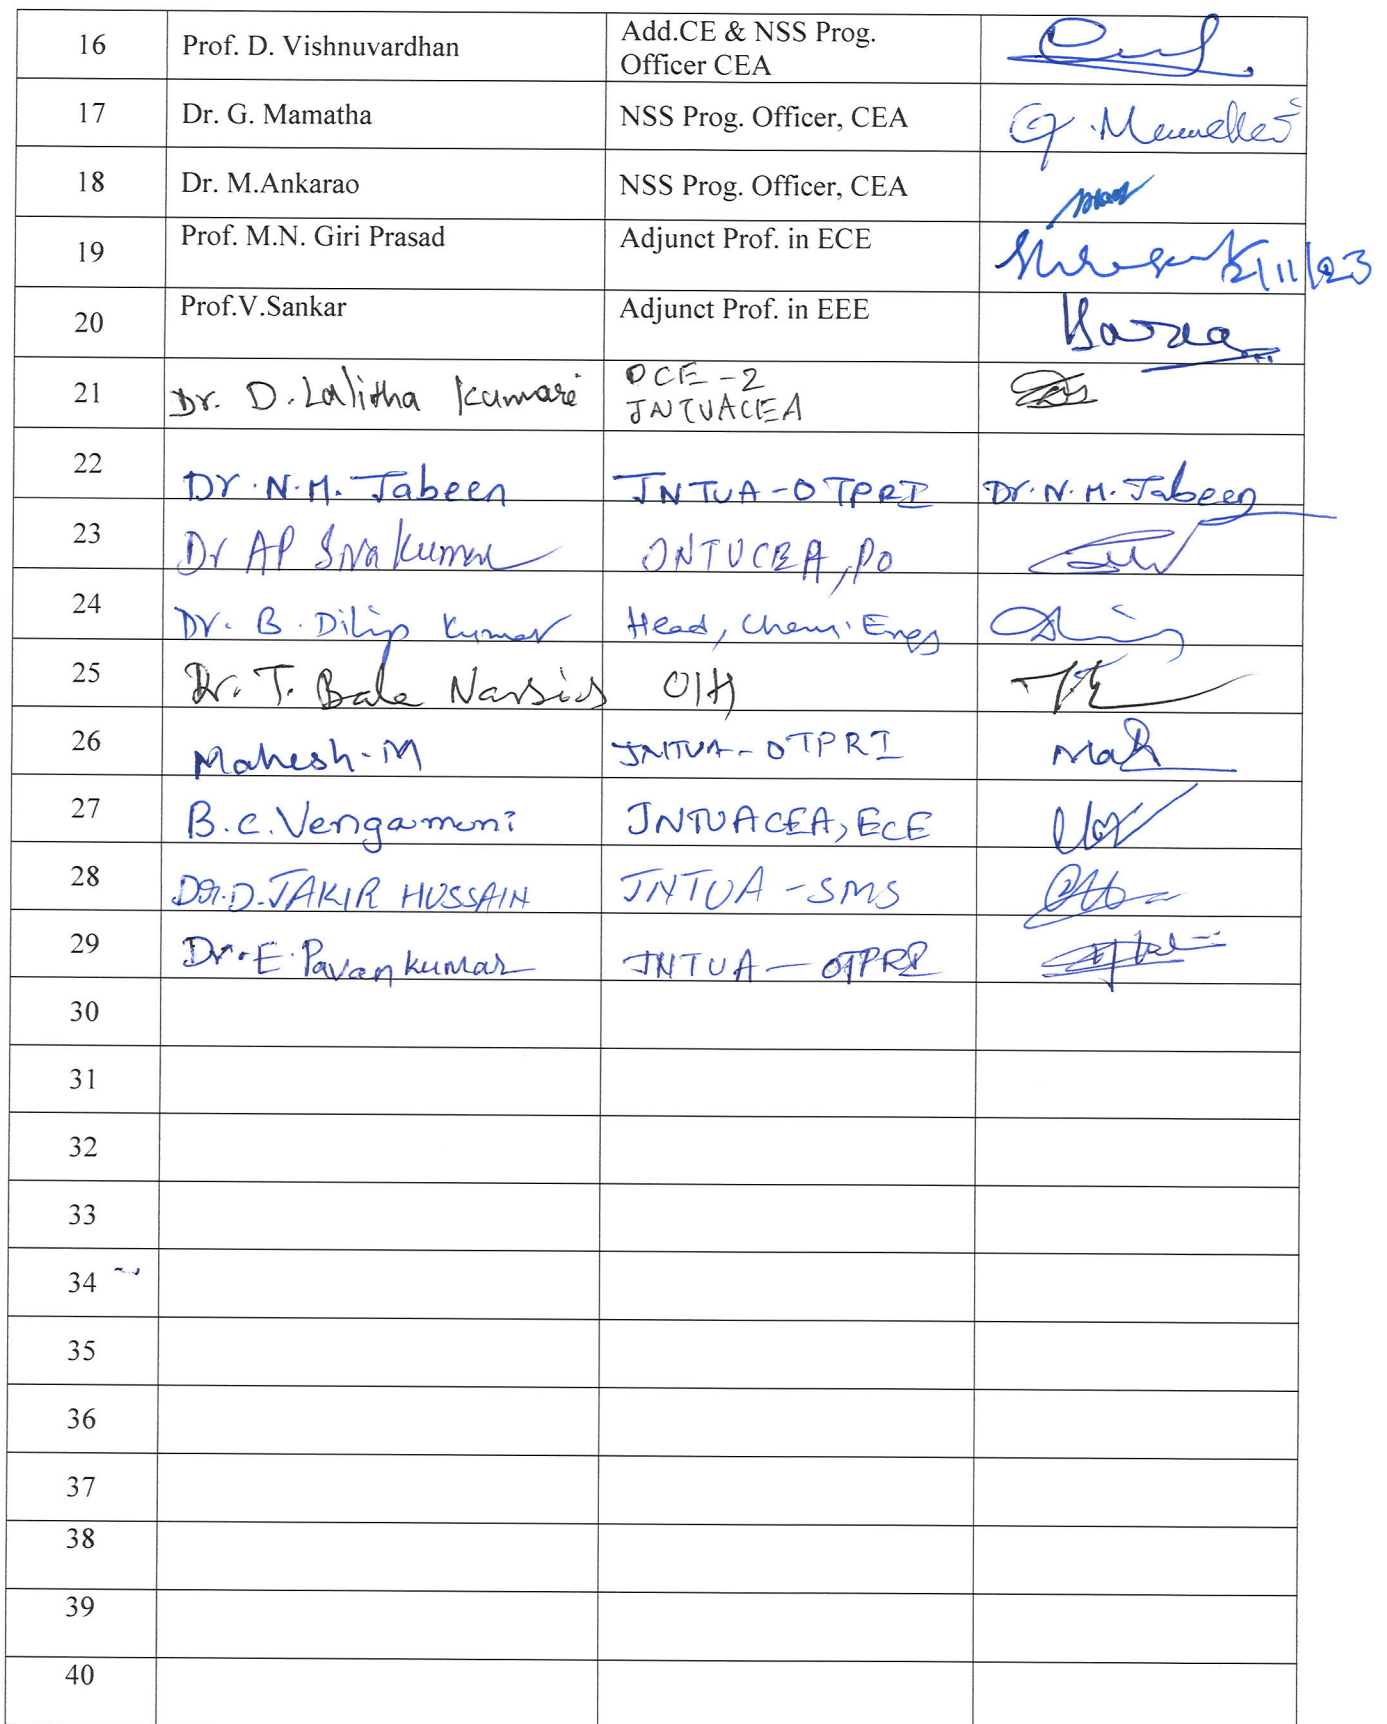 16 Prof. D. Vishnuvardhan Add.CE & NSS Prog.
Officer CEA
17 Dr. G. Mamatha NSS Prog. Officer, CEA G. Mamatha
18 Dr. M.Ankarao NSS Prog. Officer, CEA
19 Prof. M.N. Giri Prasad Adjunct Prof. in ECE
20 Prof.V.Sankar Adjunct Prof. in EEE
21 Dr. D. Lalitha Kumari OCE-2
JNTUACEA
22 Dr. N. M. Jabeen JNTUA-OTPRI Dr. N. M. Jabeen
23 Dr AP Siva Kumar JNTUCEA, PO
24 Dr. B. Dilip Kumar Head, Chem. Engg
25 Dr. T. Bala Narsi
26 Mahesh.M JNTUA-OTPRI
27 B.C. Vengamuni JNTUACEA, ECE
28 Dr.D.JAKIR HUSSAIN JNTUA-SMS
29 Dr. E. Pavan kumar JNTUA-OTPRI
30
31
32
33
34
35
36
37
38
39
40